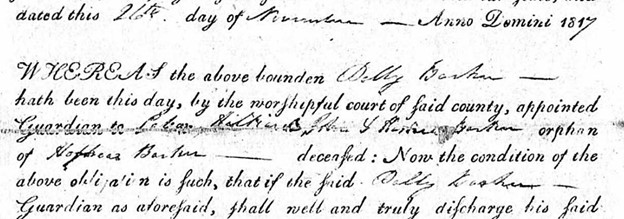 dated this 26th. day of November — Anno Domini 1817
WHEREAS the above bounden Dolly Barker —
hath been this day, by the worshipful court of said county, appointed
Guardian to Barker orphan
of Barker — deceased: Now the condition of the
above obligation is such, that if the said Dolly Barker —
Guardian as aforesaid, shall well and truly discharge his said